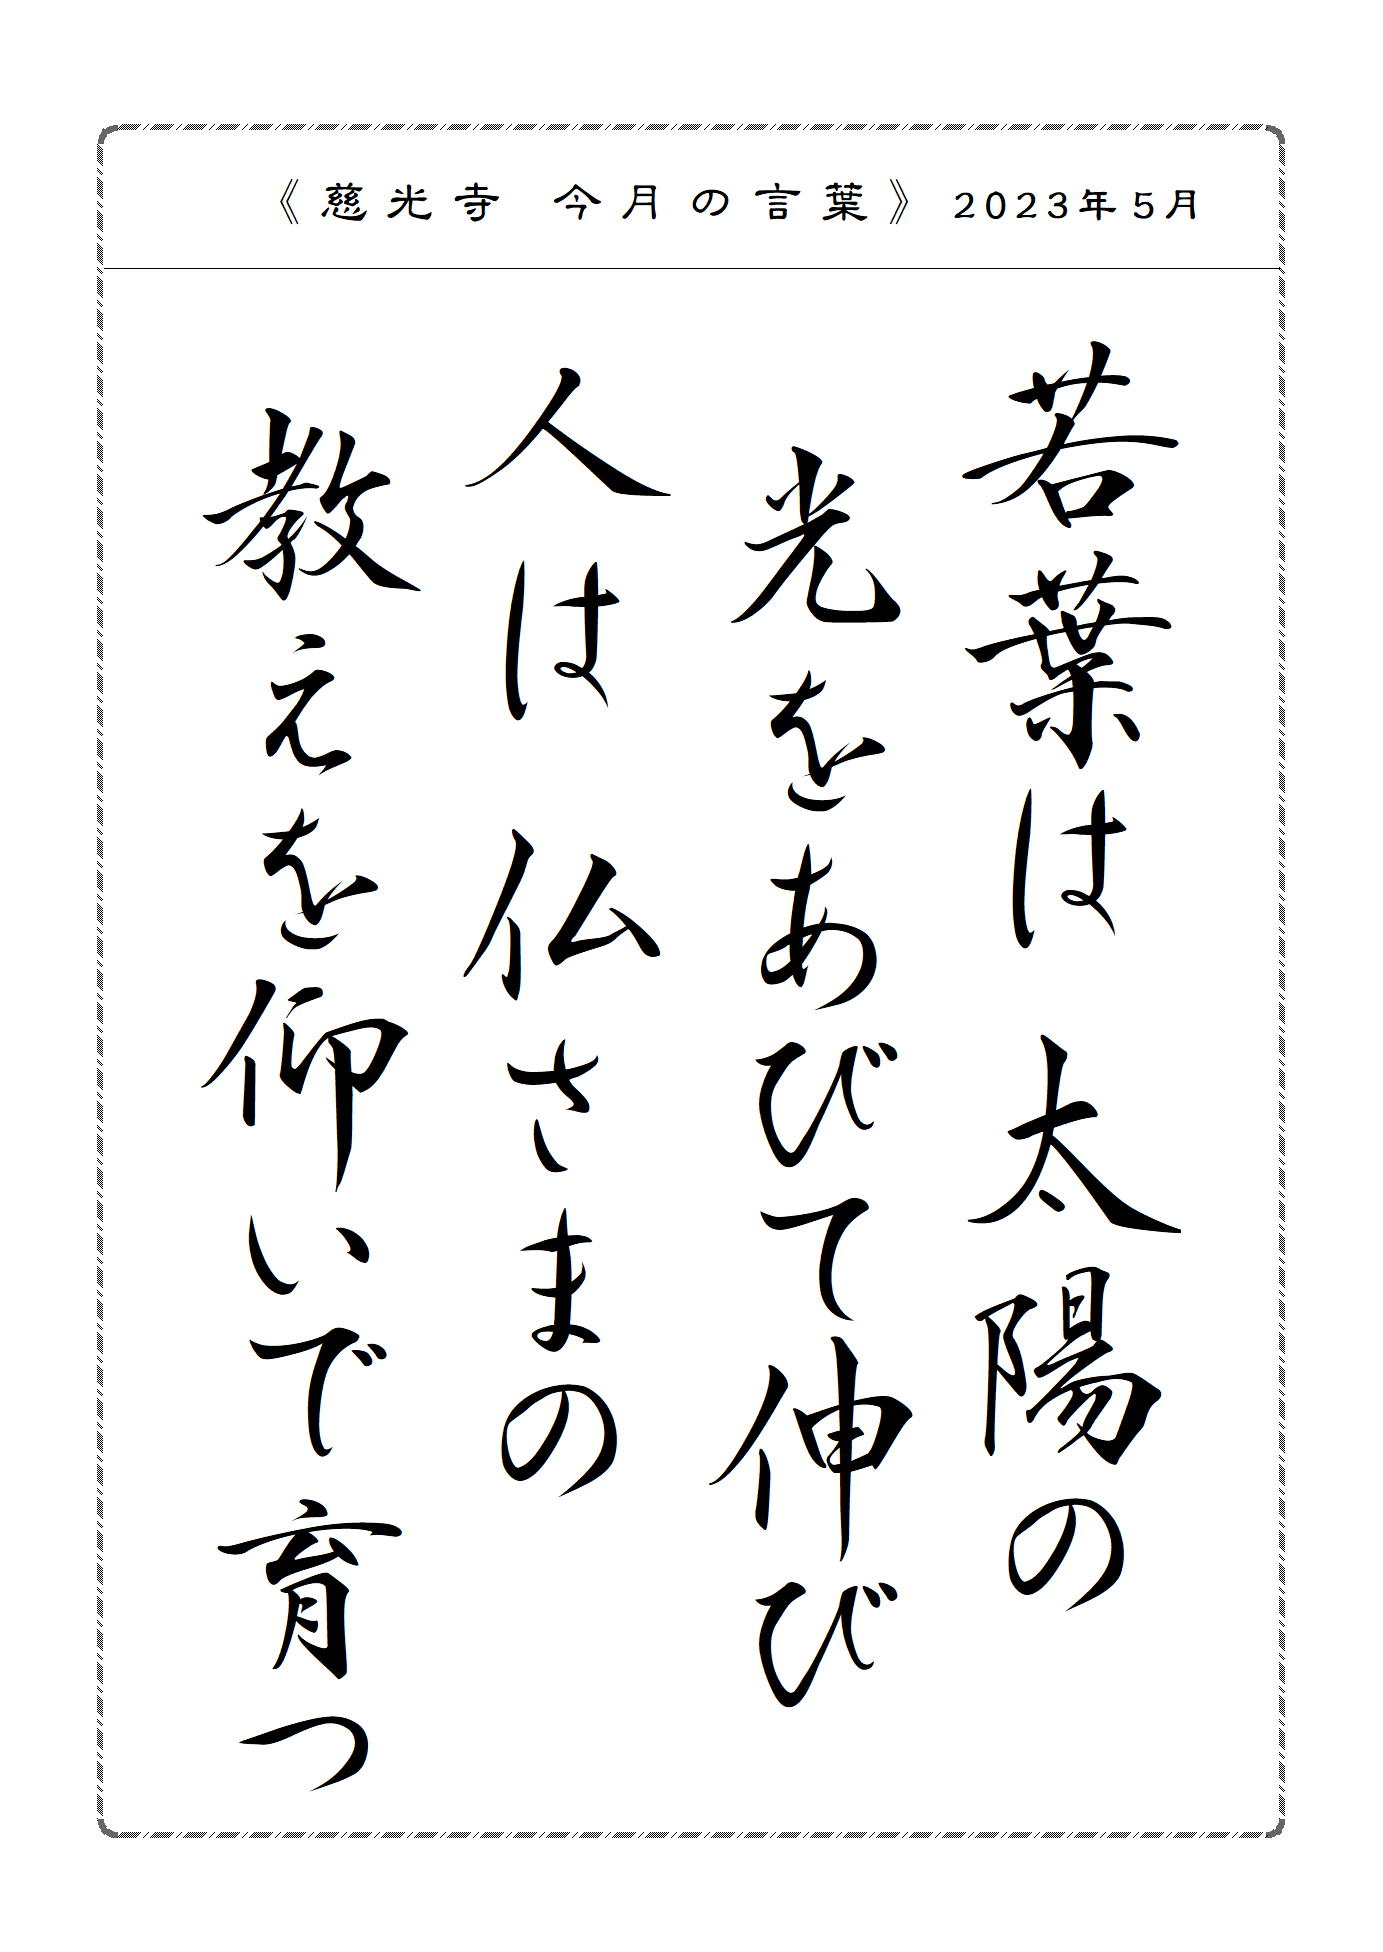 《慈光寺 今月の言葉》2023年5月
若葉は 太陽の
光をあびて伸び
人は 仏さまの
教えを仰いで育つ